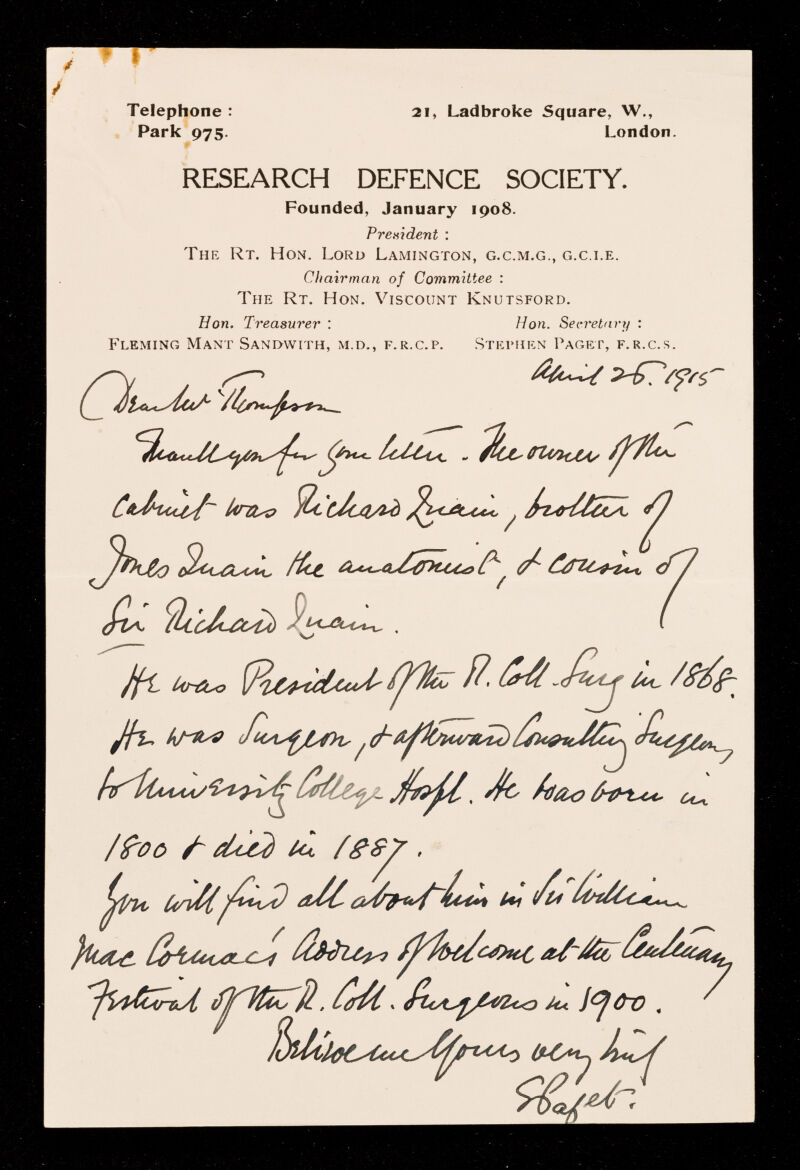 Telephone :
Park 975.
21, Ladbroke Square, W.,
London.
RESEARCH DEFENCE SOCIETY.
Founded, January 1908.
President :
The Rt. Hon. Lord Lamington, G.C.M.G., G.C.I.E.
Chairman of Committee :
The Rt. Hon. Viscount Knutsford.
Hon. Treasurer :
Fleming Mant Sandwith, M.D., F.R.C.P.
Hon. Secretary :
Stephen Paget, F.R.C.S.
April 26. 1915
Dear Mr Thompson
Thank you for your letter. The owner of the
cabinet was Richard Quain, brother of
Jones Quain the anatomist, & cousin of
Sir Richard Quain.
He was President of the R. Coll. Surg in 1868.
He was Surgeon, & afterward Consulting Surgeon,
to University College Hospl. He was born in
1800 & died in 1887.
You will find all about him in Sir William
Mac Cormac's Address of Welcome at the Centenary
Festival of the R. Coll. Surgeons in 1900.
Believe me Yours very truly
S Paget.